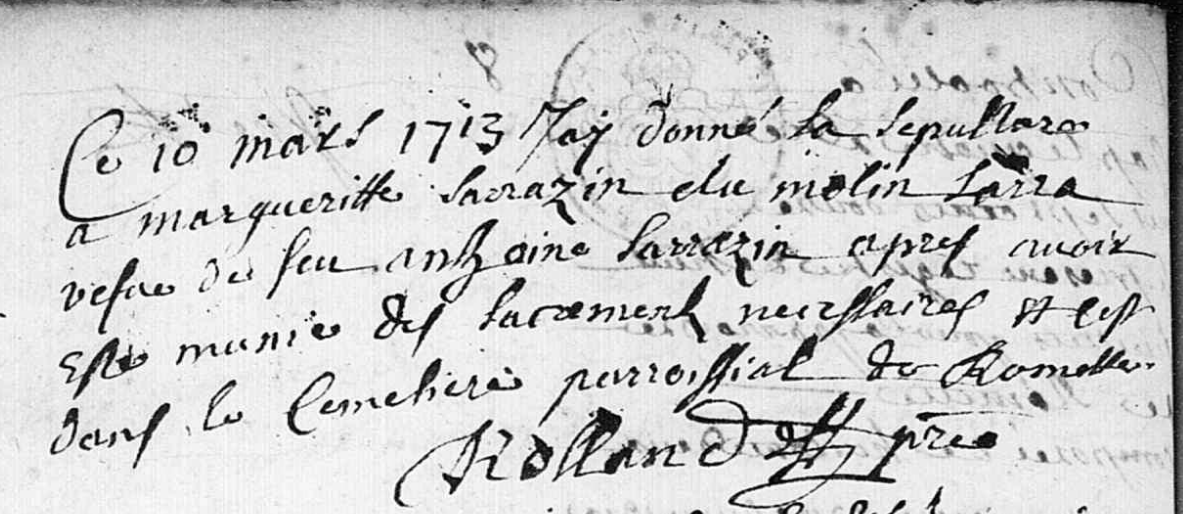 Ce 10 mars 1713 Jay donné la sepulture
a margueritte Sarrazin du molin Sarra
vefue de feu anthoine Sarrazin apres avoir
Esté munie des sacrements necessaires et cest
dans le Cemetiere parroissial de Romette.
Rolland ptre